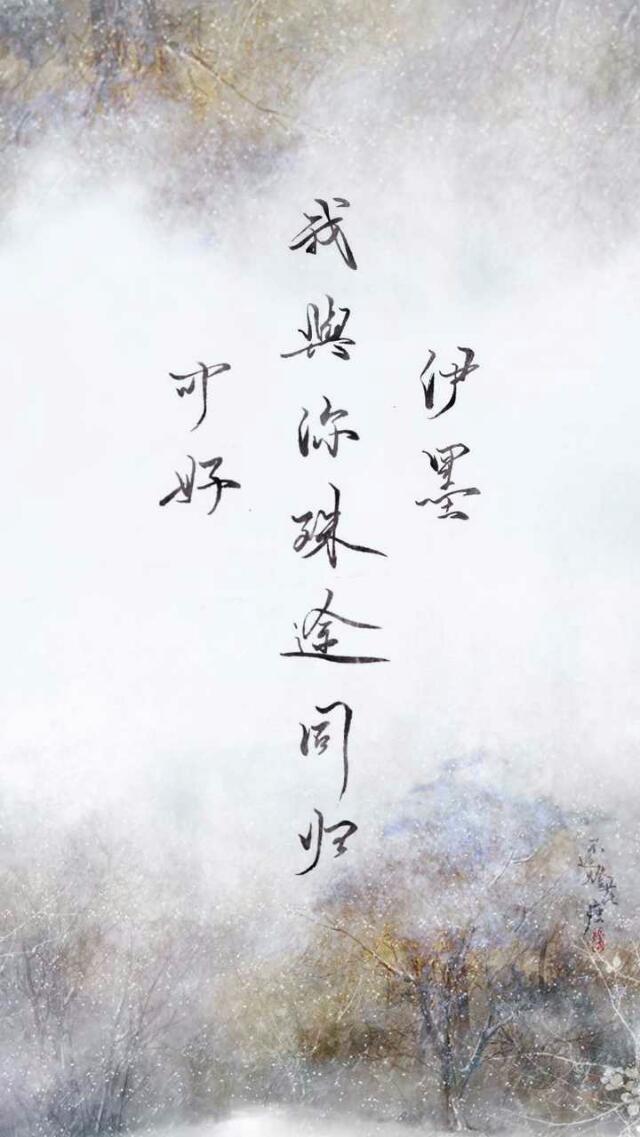 伊墨
我與你殊途同归
可好